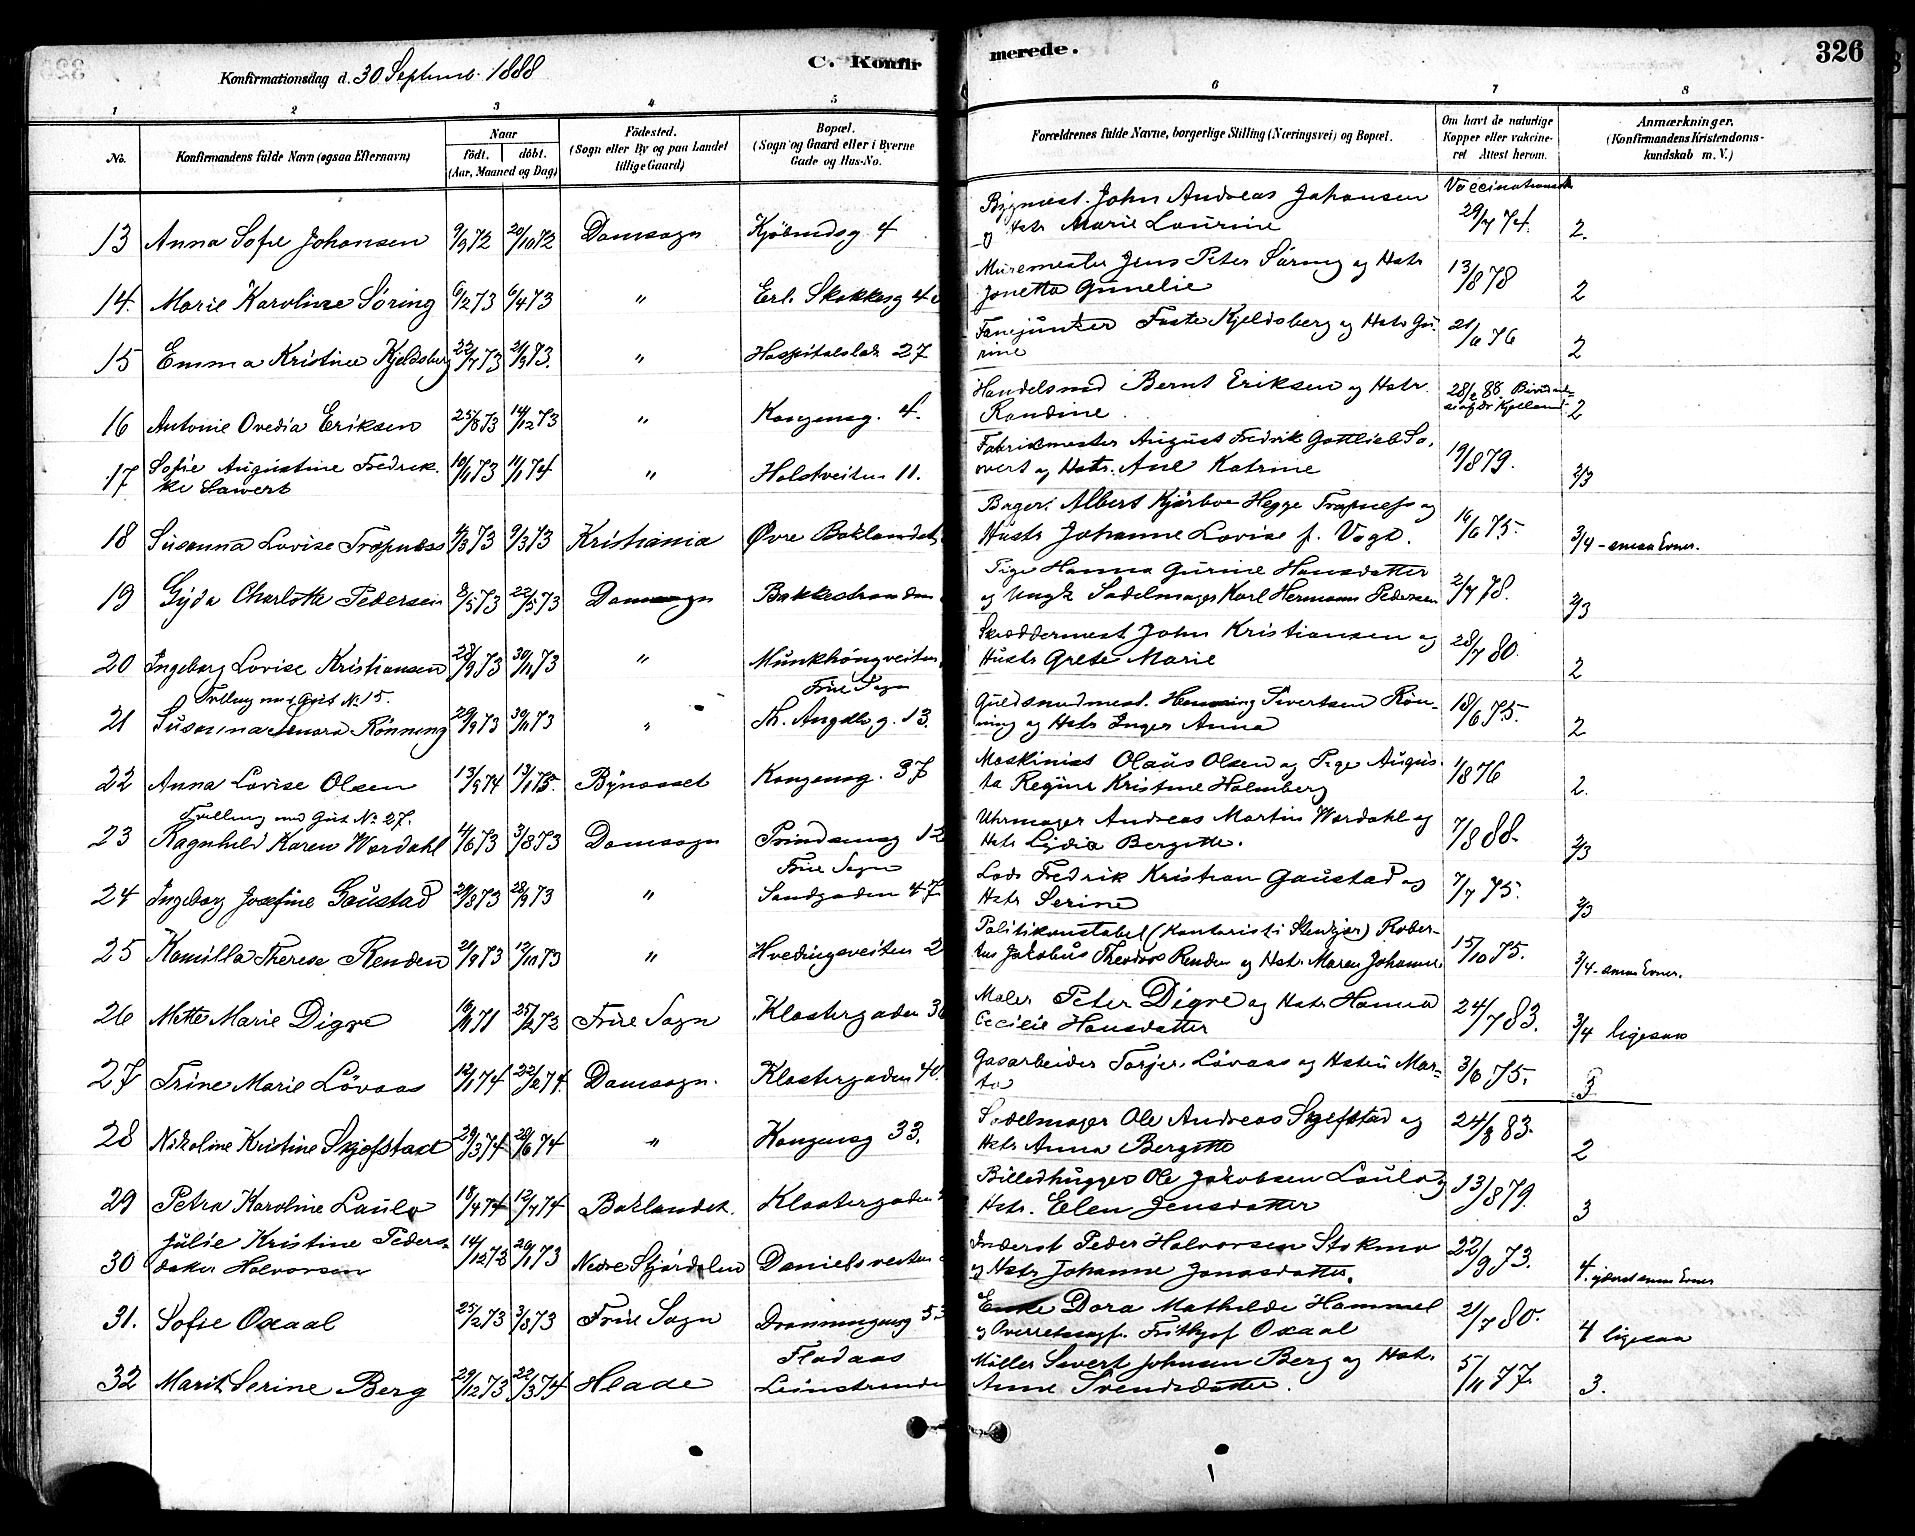 Konfirmationsdag d. 30 Septemb. 1888
C. Konfirmerede.
326
1 2 3 4 5 6 7 8
No.
Konfirmandens fulde Navn (ogsaa Efternavn)
Naar
født. døbt.
(Aar, Maaned og Dag)
Fødested.
(Sogn eller By og paa Landet
tillige Gaard)
Bopæl.
(Sogn og Gaard eller i Byerne
Gade og Hus-No.
Forældrenes fulde Navne, borgerlige Stilling (Næringsvei) og Bopæl.
Om havt de naturlige
Kopper eller vakcine-
ret Attest herom.
Anmærkninger.
(Konfirmandens Kristendoms-
kundskab m. V.)
13 Anna Sofie Johansen 9/9 72 20/10 72 Domsogn Kjøbmdsg 4
Bygmest. John Andreas Johansen
og Hstr Marie Laurine
29/7 74. 2.
14. Marie Karoline Söring 6/2 73 6/4 73 " Erl. Skakkesg 4
Muremester Jens Peter Söring og Hstr
Jonetta Gunelie 13/8 78 2
15 Emma Kristine Kjeldsberg 22/7 73 21/9 73. " Hospitalslök 27
Fanejunker Faste Kjeldsberg og Hstr Gu-
rine 21/6 76 2
16 Antonie Ovedia Eriksen 25/8 73 14/12 73 " Kongensg. 4.
Handelsmd Bernt Eriksen og Hstr
Randine. 28/2 88. 2
17 Sofie Augustine Fredrik-
ke Sawert 10/11 73 11/1 74 " Holstveiten 11.
Fabrikmester August Fredrik Gottlieb Sa-
wert og Hstr. Ane Katrine 19/8 79. 2/3
18 Susanna Lovise Trapness 9/3 73 Kristiania Øvre Baklandet
Bager Albert Kjörboe Hegge Trapness og
Hustr Johanne Lovise f. Vogt. 16/6 75. 3/4 - smaa Evner.
19 Gyda Charlotte Pedersen 8/5 73 22/5 73 Domsogn Bakkestranden
Pige Hanna Gurine Hansdatter
og Ungk Sadelmager Karl Hermann Pedersen 2/7 78. 2/3
20 Ingeborg Lovise Kristiansen 28/9 73 30/11 73 " Munkhaugveiten
Skræddermest John Kristiansen og
Hustr Grete Marie 28/7 80. 2
Tvilling med Gut No 15. Frue Sogn
21 Susanna Lenora Rönning 29/9 73 30/11 73 " Th. Angells g. 13.
Guldsmedmest. Henning Sivertsen Rön-
ning og Hstr Inger Anna 18/6 75. 2
22 Anna Lovise Olsen 13/9 74 17/1 75. Bynesset Kongensg. 37
Maskinist Olaus Olsen og Pige Augus-
ta Regine Kristine Holmberg 1/8 76 2.
Tvilling med Gut No 27.
23 Ragnhild Karen Wordahl 4/6 73 3/8 73 Domsogn Prindsensg 12
Uhrmager Andreas Martin Wordahl og
Hstr Lydia Bergitte. 7/8 88. 2/3
Frue Sogn
24 Ingeborg Josefine Gaustad 24/8 73 28/9 73 " Sandgaden 47
Lods Fredrik Kristian Gaustad og
Hstr Serine 7/7 75. 2/3
25 Kamilla Therese Renden 21/9 73 12/10 73 " Hvedingsveiten 2
Politikonstabel (Kontorist i Stenkjær) Rober-
tus Jakobus Theodor Renden og Hstr Maren Johanne 15/10 75. 3/4 - smaa Evner.
26 Mette Marie Digre 19/11 71 25/2 72 Frue Sogn Klostergaden 36
Maler Peter Digre og Hstr Hanna
Cecilie Hansdatter 24/7 83. 3/4 ligesaa
27 Trine Marie Lövaas 12/1 74 22/2 74. Domsogn. Klostergaden 40.
Gasarbeider Torjer Lövaas og Hstr Mar-
ta 3/6 75. 3.
28 Nikoline Kristine Skjefstad 29/3 74 28/6 74 " Kongensg 33.
Sadelmager Ole Andreas Skjefstad og
Hstr Anna Bergitte 24/8 83. 2
29 Petra Karoline Laulo 18/4 74 12/7 74 Baklandet. Klostergaden
Billedhugger Ole Jakobsen Laulo og
Hstr. Elen Jensdatter 13/8 79. 3
30 Julie Kristine Peders-
datter Halvorsen 14/12 72 26/1 73 Nedre Stjørdalen Danielsveiten
Inderst Peder Halvorsen Stokmo
og Hstr Johanne Jonasdatter. 22/9 73. 4.
31. Sofie Oxaal 25/2 73 3/8 73 Frue Sogn Dronningensg 53
Enke Dora Mathilde Hammel
og Overretssagf. Frithjof Oxaal 21/7 80. 4 ligesaa
32 Marit Serine Berg 29/12 73 22/3 74 Hlade Fladaas
Leinstranden
Møller Sivert Johnsen Berg og Hstr.
Anne Svendsdatter. 5/11 77. 3.